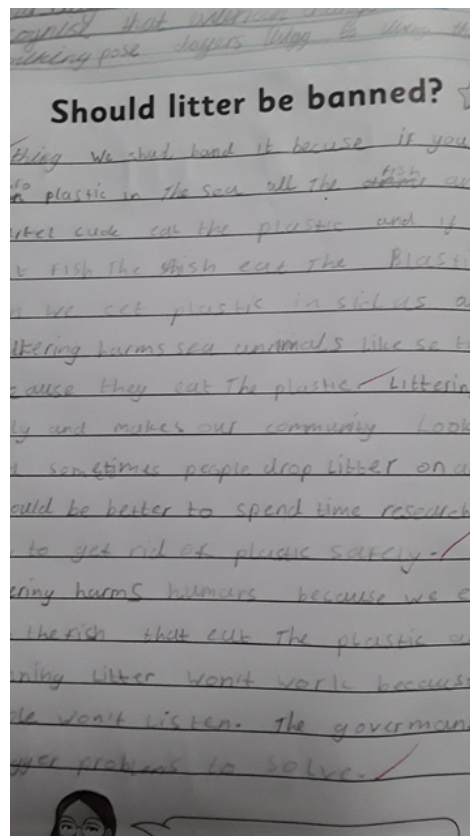 that
pose
Should litter be banned?
thing We shud band it becuse if you
plastic in The sea all The fish
cude eat the plastic and if
Fish The fish eat The Blasti
we get plastic in sid us
ttering harms sea annimals Like se t
cause they eat The plastic. Litterin
ly and makes our community Look
sometimes people drop Litter on
ould be better to spend time research
to get rid of plastic safely.
ering harms humans because we e
the fish that eat The plastic a
ning Litter won't work becaus
le won't Listen. The goverman
gger problems to solve.